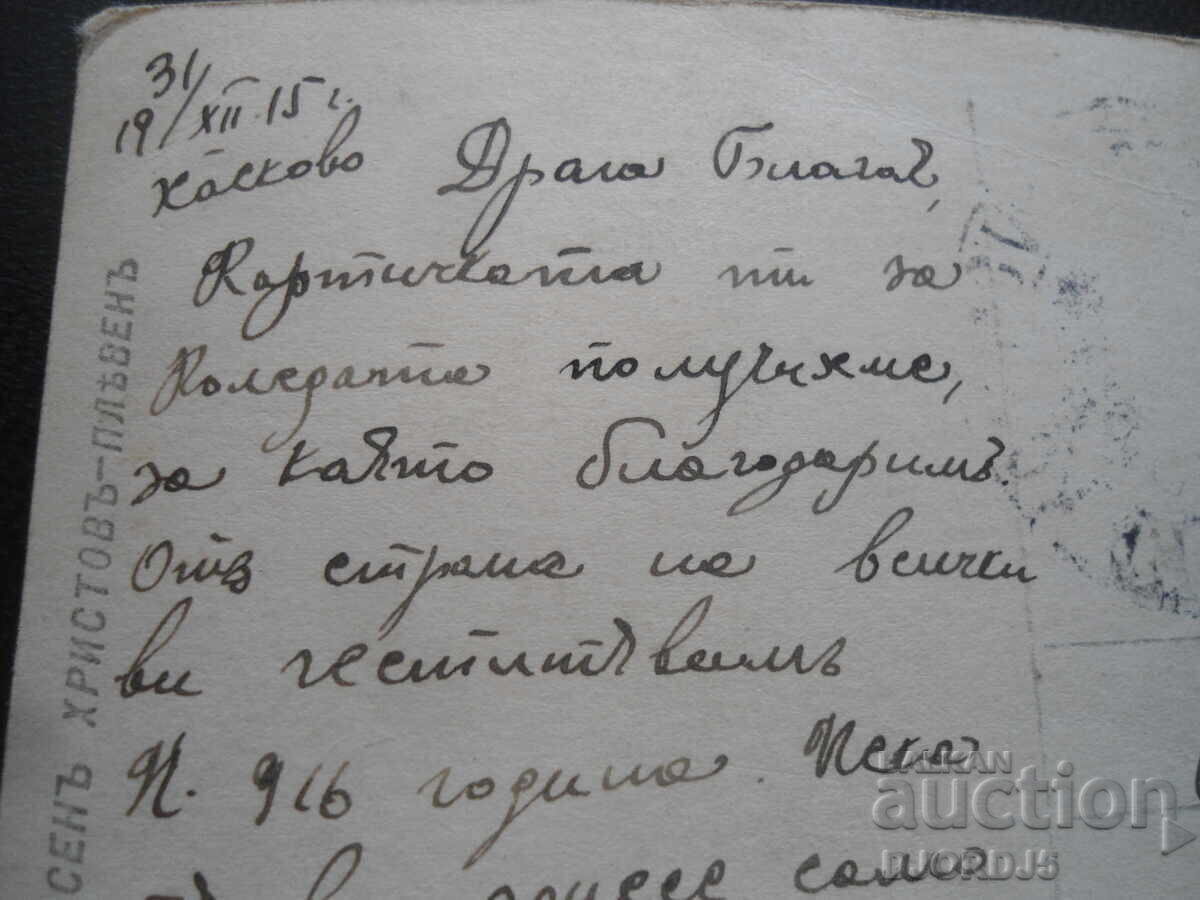 31/XII.15 г.
19
Хасково
Драга Блага,
Картичката ти за
Коледата получихме,
за която благодаримъ.
Отъ страна на всички
ви честитѣвамъ
Н. 916 година. Нека
донесе само
СЕНЪ ХРИСТОВЪ-ПЛѢВЕНЪ
BALKAN
auction
DJORDJ5